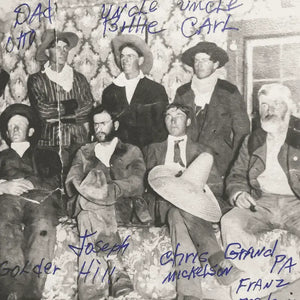 DAD
OTTO
UNCLE
Billie
UNCLE
CARL
Golder
Joseph
Hill
Chris
Mickelson
GRAND PA
FRANZ